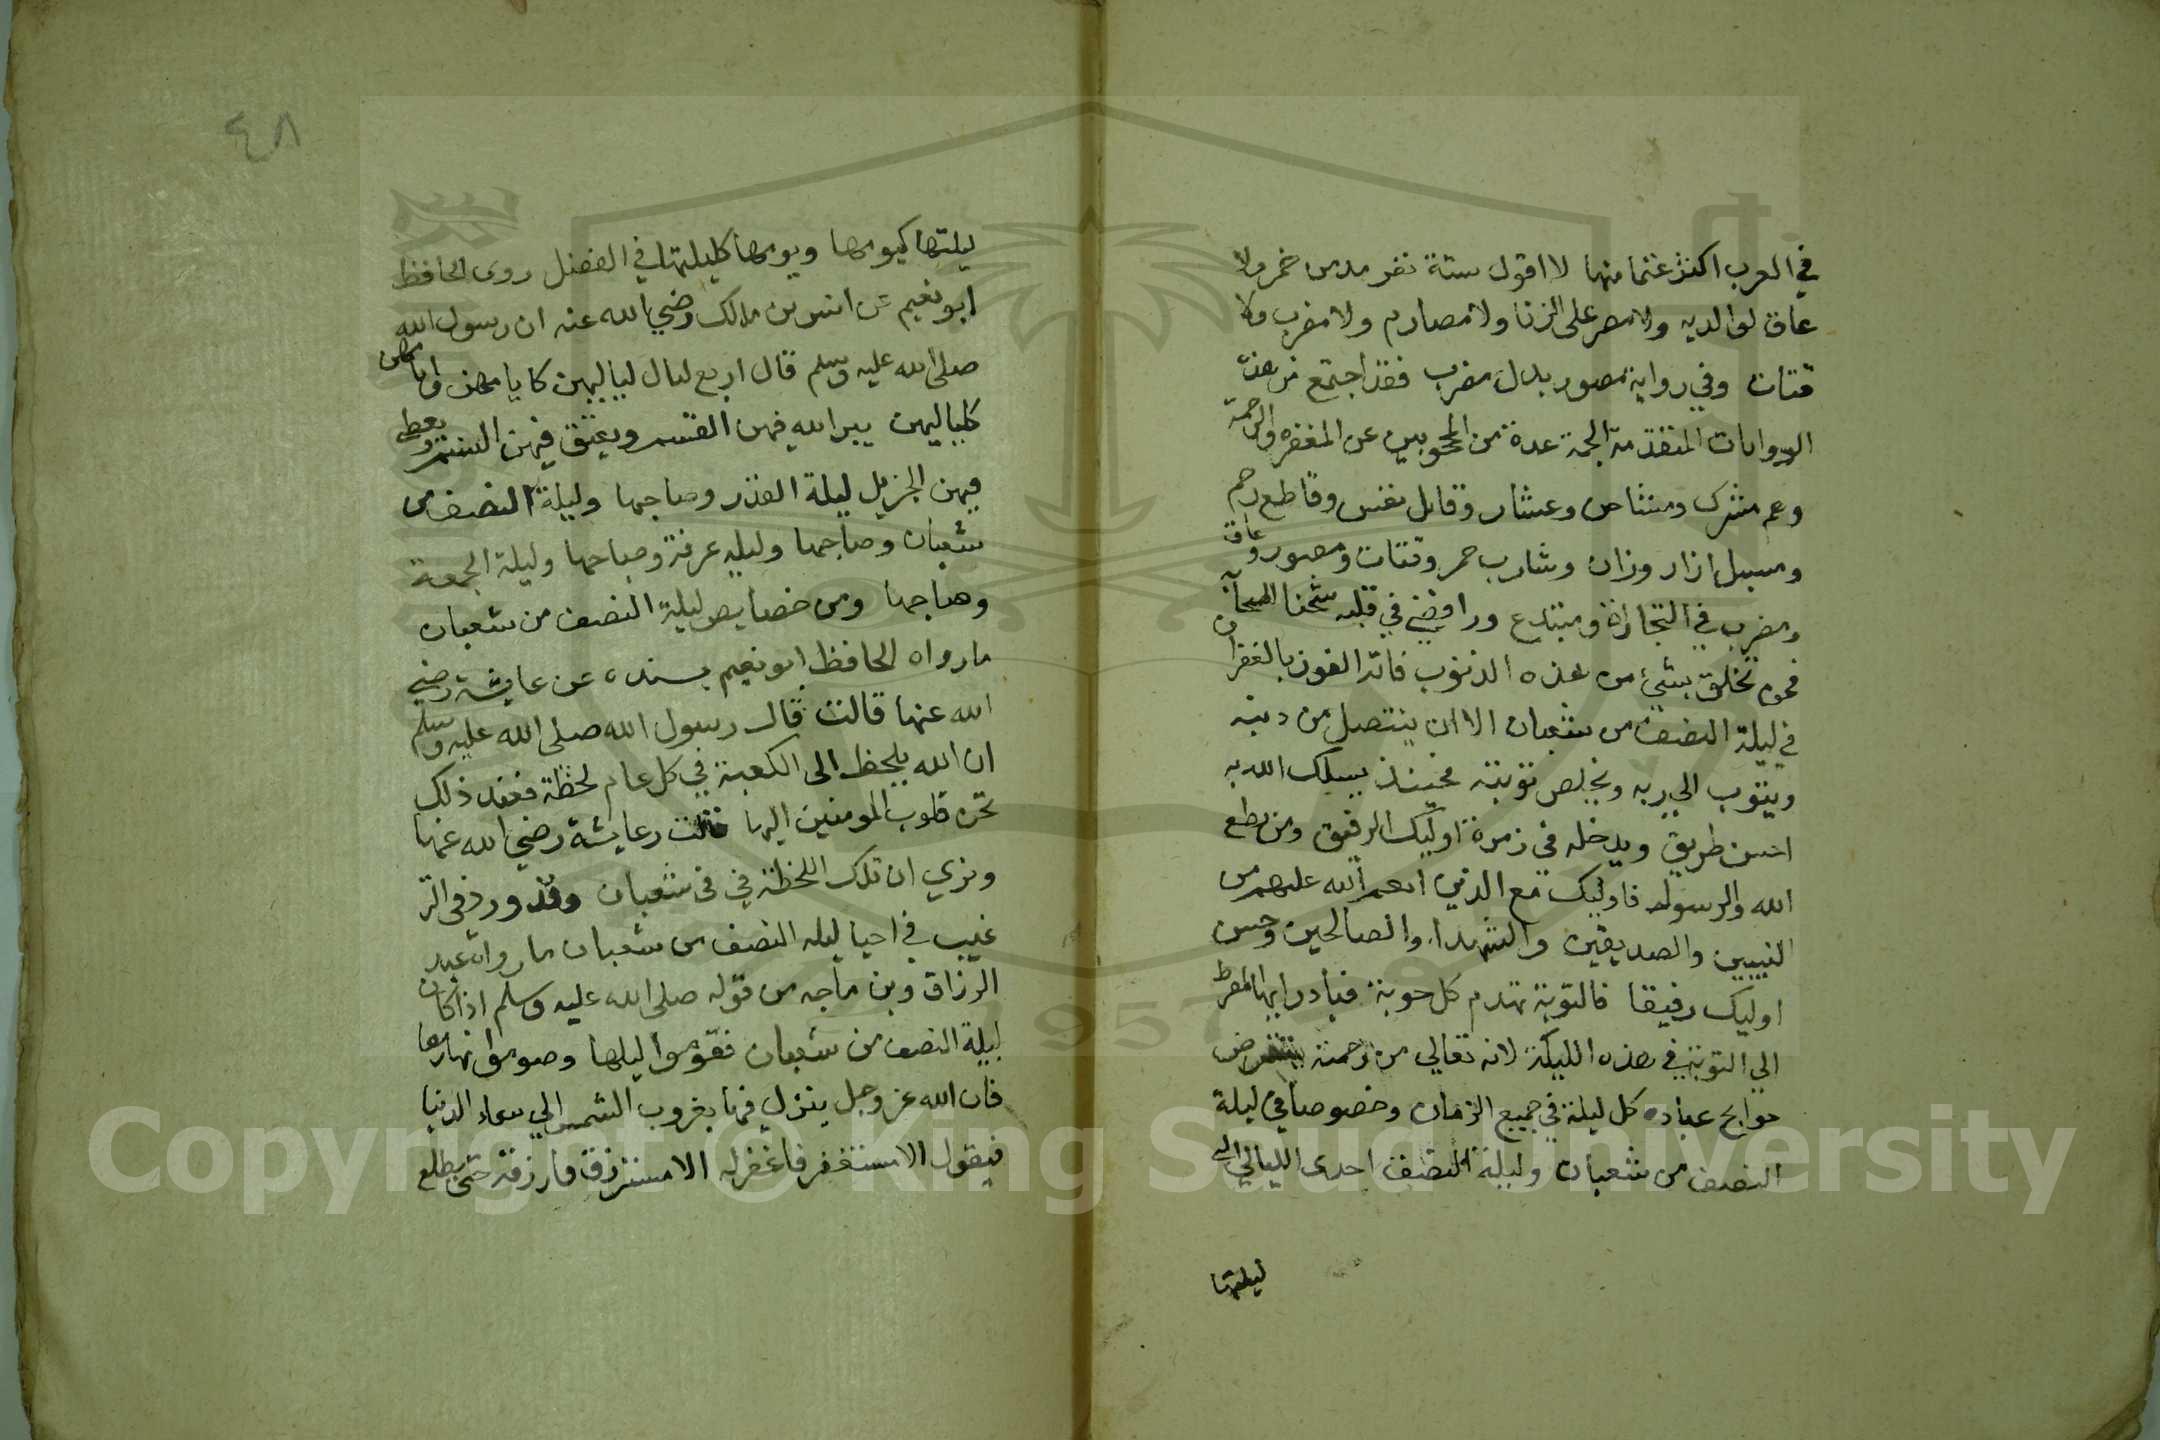 في العرب اكثر غنما منها لا اقول ستة نفر مدمن خمر ولا
عاق لوالديه ولا مصر على الزنا ولا مصارم ولا مضرب ولا
قتات وفي رواية مصور بدل مضرب فقد اجتمع من هذه
الروايات المتقدمة الجمة عدة من المحجوبين عن المغفره والرحمة
وهم مشرك ومشاحن وعشار وقاتل نفس وقاطع رحم
ومسبل ازار وزان وشارب خمر وقتات ومصور وعاق
ومضرب في التجارة ومبتدع ورافضي في قلبه شحنا للصحابه
فمن تخلق بشيء من هذه الذنوب فاته الفوز بالغفران
في ليلة النصف من شعبان الا ان يتنصل من دينه
ويتوب الي ربه ويخلص توبته فحينئذ يسلك الله به
احسن طريق ويدخله في زمرة اوليك الرفيق ومن يطع
الله والرسول فاوليك مع الذين انعم الله عليهم من
النبيين والصديقين والشهداء والصالحين وحسن
اوليك رفيقا فالتوبة تهدم كل حوبة فبادر ايها المفرط
الي التوبة في هذه الليلة لانه تعالي من رحمته
حوايج عباده كل ليلة في جميع الزمان وخصوصا في ليلة
النصف من شعبان وليلة النصف احدى الليالي التي
ليلتها
٤٨
ليلتها كيومها ويومها كليلتها في الفضل روى الحافظ
ابو نعيم عن انس بن مالك رضي الله عنه ان رسول الله
صلى الله عليه وسلم قال اربع ليال لياليهن كايامهن وايامهن
كلياليهن يبر الله فيهن القسم ويعتق فيهن النسم ويعطى
فيهن الجزيل ليلة القدر وصباحها وليلة النصف من
شعبان وصباحها وليله عرفة وصباحها وليلة الجمعة
وصباحها ومن خصايص ليلة النصف من شعبان
ما رواه الحافظ ابو نعيم بسنده عن عايشة رضي
الله عنها قالت قال رسول الله صلى الله عليه وسلم
ان الله يلحظ الى الكعبة في كل عام لحظة فعند ذلك
تحن قلوب المومنين اليها قالت عايشة رضي الله عنها
ونري ان تلك اللحظة في في شعبان وقد ورد في التر
غيب في احيا ليله النصف من شعبان ما رواه عبد
الرزاق وبن ماجه من قوله صلى الله عليه وسلم اذا كان
ليلة النصف من شعبان فقوموا ليلها وصوموا نهارها
فان الله عز وجل ينزل فيها بغروب الشمس الي سماء الدنيا
فيقول الا مستغفر فاغفر له الا مسترزق فارزقه حتى يطلع